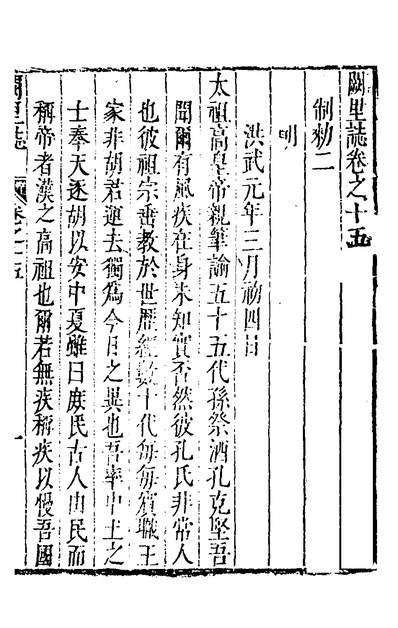 闕里誌卷之十五
制勑二
明
洪武元年三月初四日
太祖高皇帝親筆諭五十五代孫祭酒孔克堅吾
聞爾有風疾在身未知實否然彼孔氏非常人
也彼祖宗垂教於世歷經數十代每每賓職王
家非胡君運去獨為今日之異也吾率中土之
士奉天逐胡以安中夏雖曰庶民古人由民而
稱帝者漢之高祖也爾若無疾稱疾以慢吾國
闕里誌
卷之十五
一